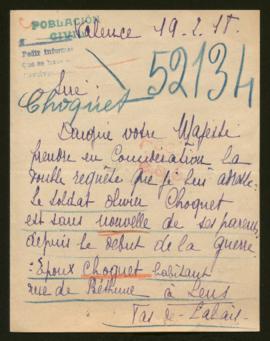 POBLACIÓN
CIVIL
Valence 19.2.18.
Pedir informes
52134
Sire,
Choquet
votre Majesté
prendre en Considération la
double requête que je lui adresse.
le soldat Olivier Choquet
est sans nouvelle de ses parents
depuis le début de la guerre
: Epoux Choquet habitant
rue de Béthune à Lens
Pas-de-Calais.